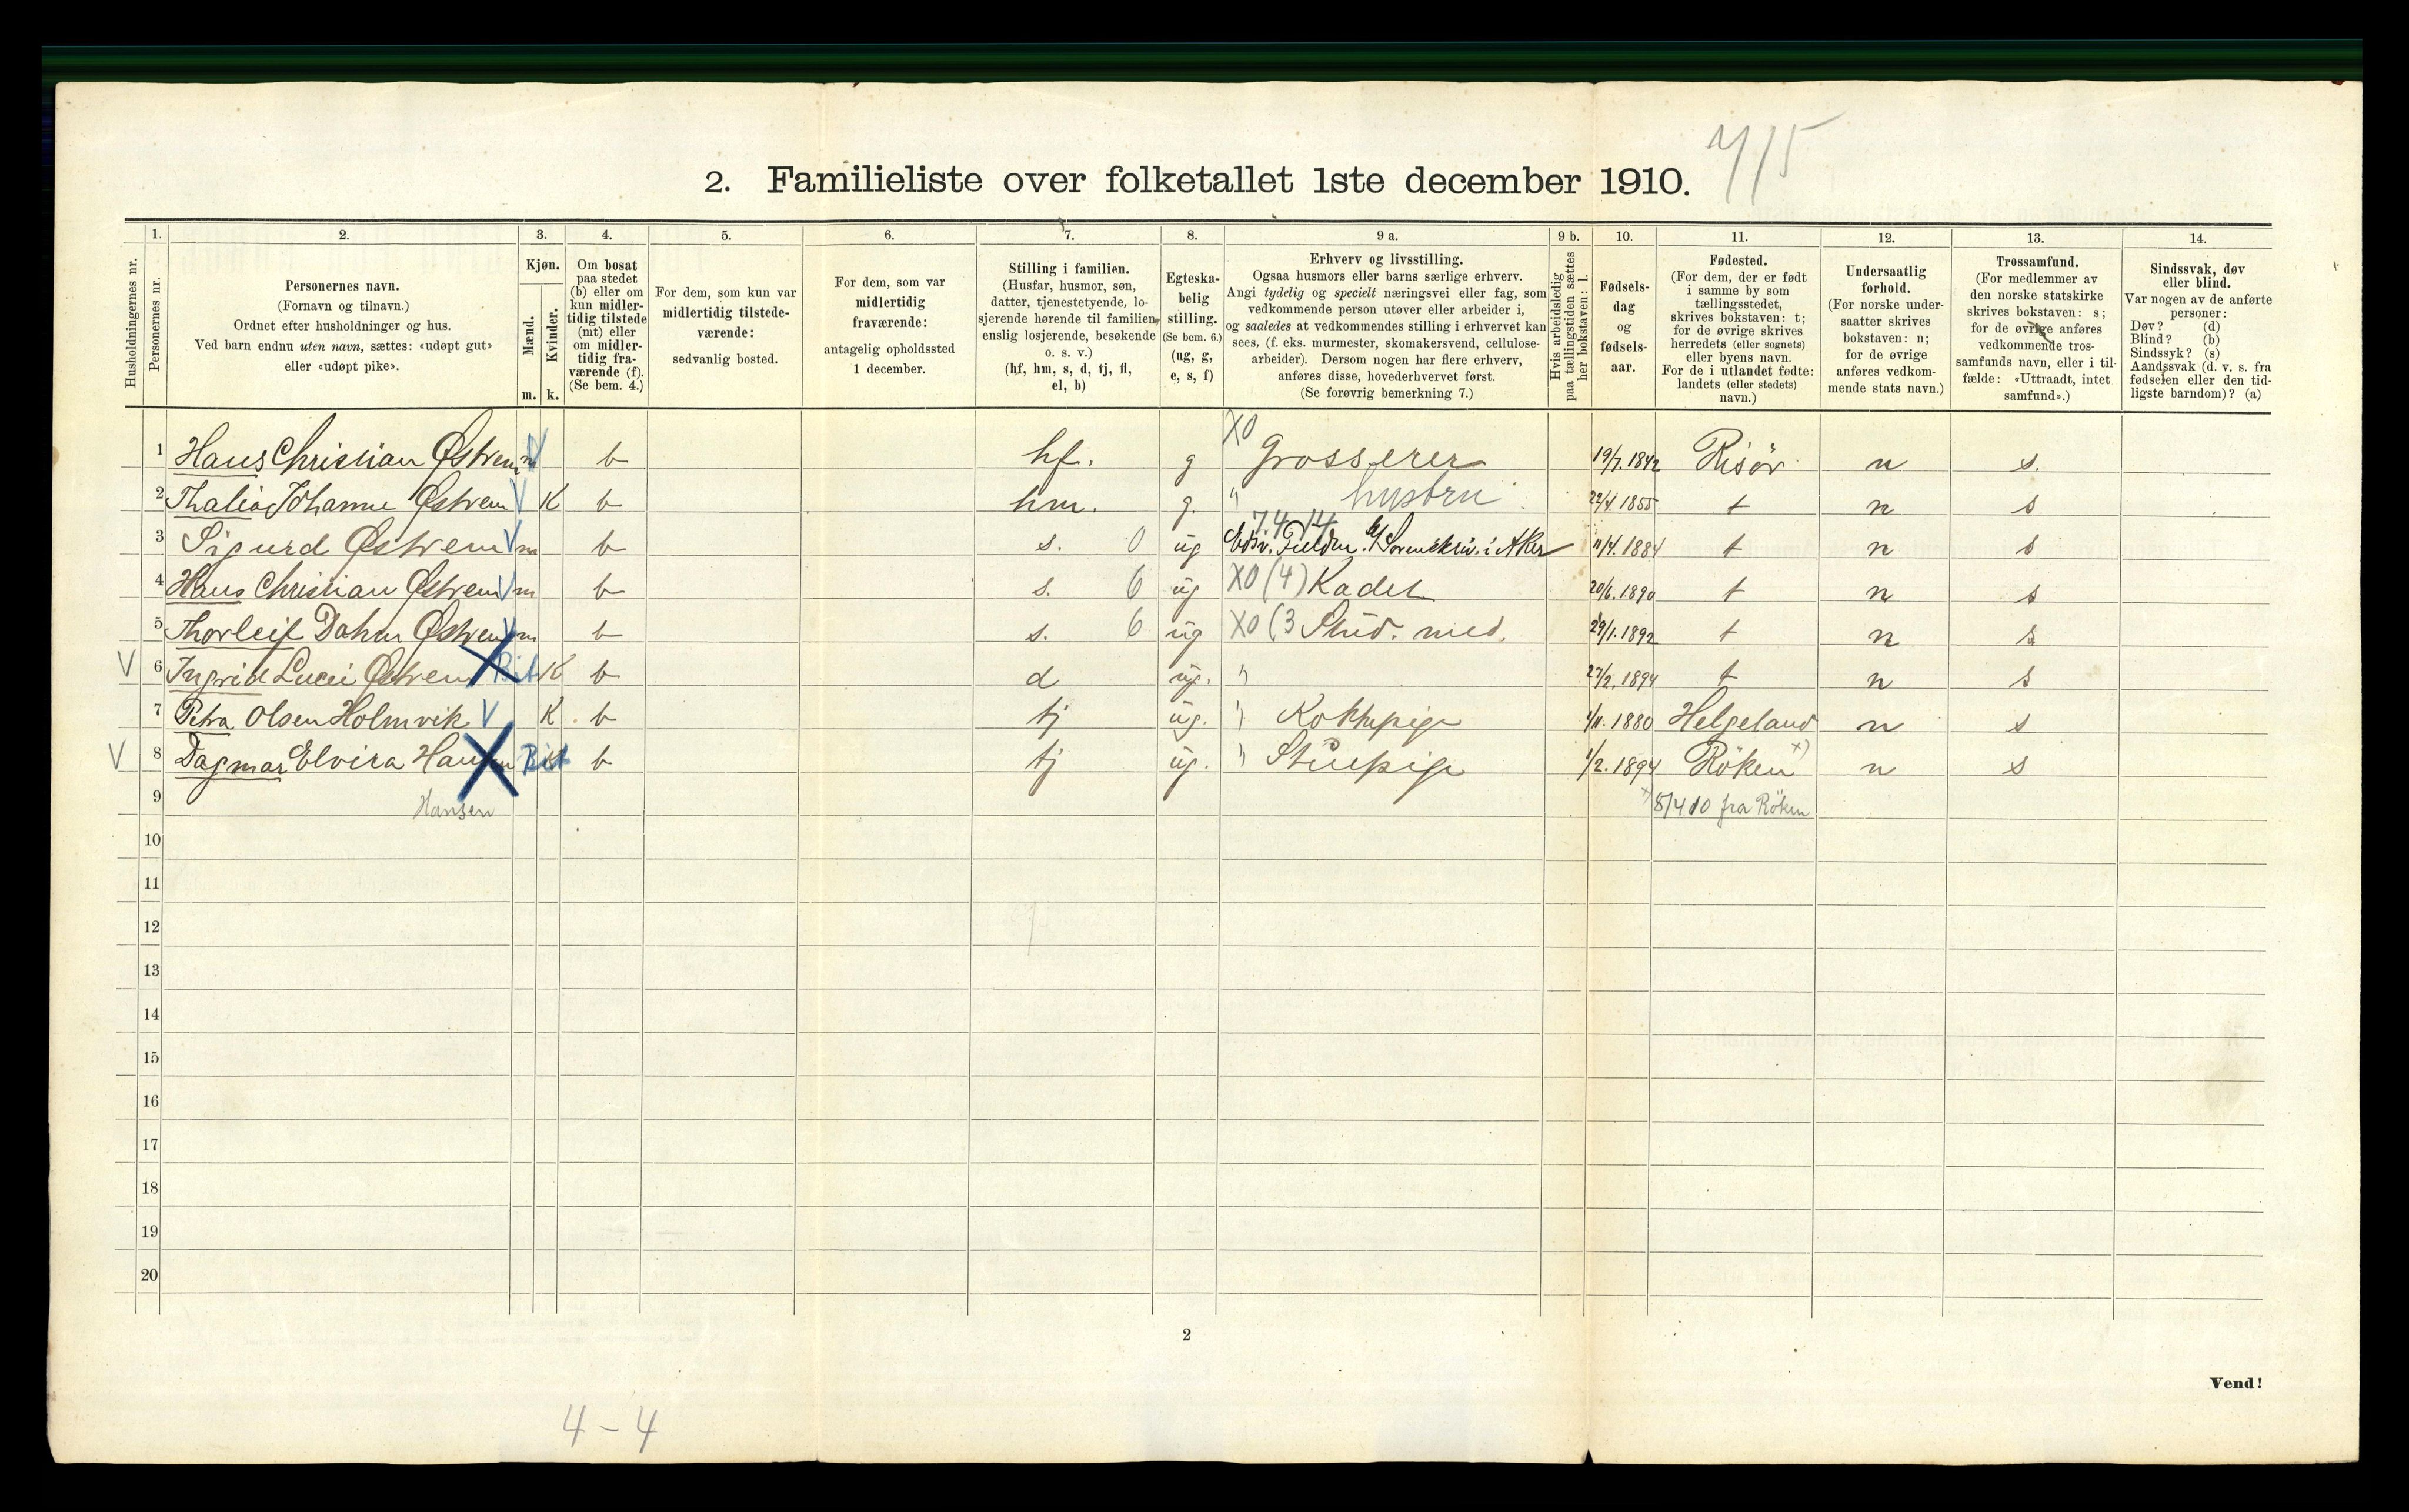 7/15
2. Familieliste over folketallet 1ste december 1910.
Husholdningernes nr.
1.
Personernes nr.
2.
Personernes navn.
(Fornavn og tilnavn.)
Ordnet efter husholdninger og hus.
Ved barn endnu uten navn, sættes: «udøpt gut»
eller «udøpt pike».
3.
Kjøn.
Mænd.
Kvinder.
m. k.
4.
Om bosat
paa stedet
(b) eller om
kun midler-
tidig tilstede
(mt) eller
om midler-
tidig fra-
værende (f).
(Se bem. 4.)
5.
For dem, som kun var
midlertidig tilstede-
værende:
sedvanlig bosted.
6.
For dem, som var
midlertidig
fraværende:
antagelig opholdssted
1 december.
7.
Stilling i familien.
(Husfar, husmor, søn,
datter, tjenestetyende, lo-
sjerende hørende til familien,
enslig losjerende, besøkende
o. s. v.)
(hf, hm, s, d, tj, fl,
el, b)
8.
Egteska-
belig
stilling.
(Se bem. 6.)
(ug, g,
e, s, f)
9 a.
Erhverv og livsstilling.
Ogsaa husmors eller barns særlige erhverv.
Angi tydelig og specielt næringsvei eller fag, som
vedkommende person utøver eller arbeider i,
og saaledes at vedkommendes stilling i erhvervet kan
sees, (f. eks. murmester, skomakersvend, cellulose-
arbeider). Dersom nogen har flere erhverv,
anføres disse, hovederhvervet først.
(Se forøvrig bemerkning 7.)
9 b.
Hvis arbeidsledig
paa tællingstiden sættes
her bokstaven: l.
10.
Fødsels-
dag
og
fødsels-
aar.
11.
Fødested.
(For dem, der er født
i samme by som
tællingsstedet,
skrives bokstaven: t;
for de øvrige skrives
herredets (eller sognets)
eller byens navn.
For de i utlandet fødte:
landets (eller stedets)
navn.)
12.
Undersaatlig
forhold.
(For norske under-
saatter skrives
bokstaven: n;
for de øvrige
anføres vedkom-
mende stats navn.)
13.
Trossamfund.
(For medlemmer av
den norske statskirke
skrives bokstaven: s;
for de øvrige anføres
vedkommende tros-
samfunds navn, eller i til-
fælde: «Uttraadt, intet
samfund».)
14.
Sindssvak, døv
eller blind.
Var nogen av de anførte
personer:
Døv? (d)
Blind? (b)
Sindssyk? (s)
Aandssvak (d. v. s. fra
fødselen eller den tid-
ligste barndom)? (a)
1 Hans Christian Østrem m V b hf. g X0 Grosserer 19/7. 1842 Risör n s.
2 Thalia Johanne Østrem V K b hm. g. " hustru 22/4. 1855 t n s
3 Sigurd Østrem V m b s. 0 ug 74 14 Edsv. Fuldm. h/ Sorenskriv. i Aker 11/4. 1884 t n s
4 Hans Christian Østrem V m b s. 6 ug X0 (4) Kadet 20/6. 1890 t n s
5 Thorleif Dahm Østrem V m b s. 6 ug X0 (3 Stud. med. 29/1. 1892 t n s
V 6 Ingrid Lucie Østrem X Bit K b d ug. " 27/2. 1894 t n s
7 Petra Olsen Holmvik V K b tj ug. " Kokkepige 1/11. 1880 Helgeland n s
V 8 Dagmar Elvira Hansen X Bit b tj ug. " Stuepige 1/2. 1894 Röken x) n s
9 Hansen x) 8/4 10 fra Röken
10
11
12
13
14
15
16
17
18
19
20
2
Vend!
4-4